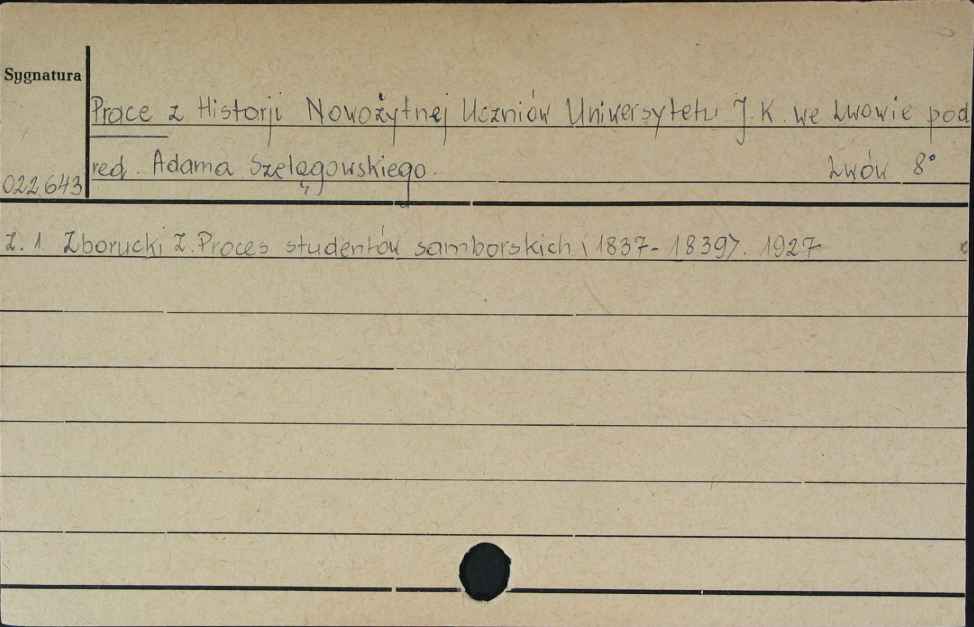 Sygnatura
Prace z Historji Nowożytnej Uczniów Uniwersytetu J. K. we Lwowie pod
red. Adama Szelągowskiego. Lwów 8°
022643
Z. 1. Zborucki Z. Proces studentów samborskich (1837-1839). 1927